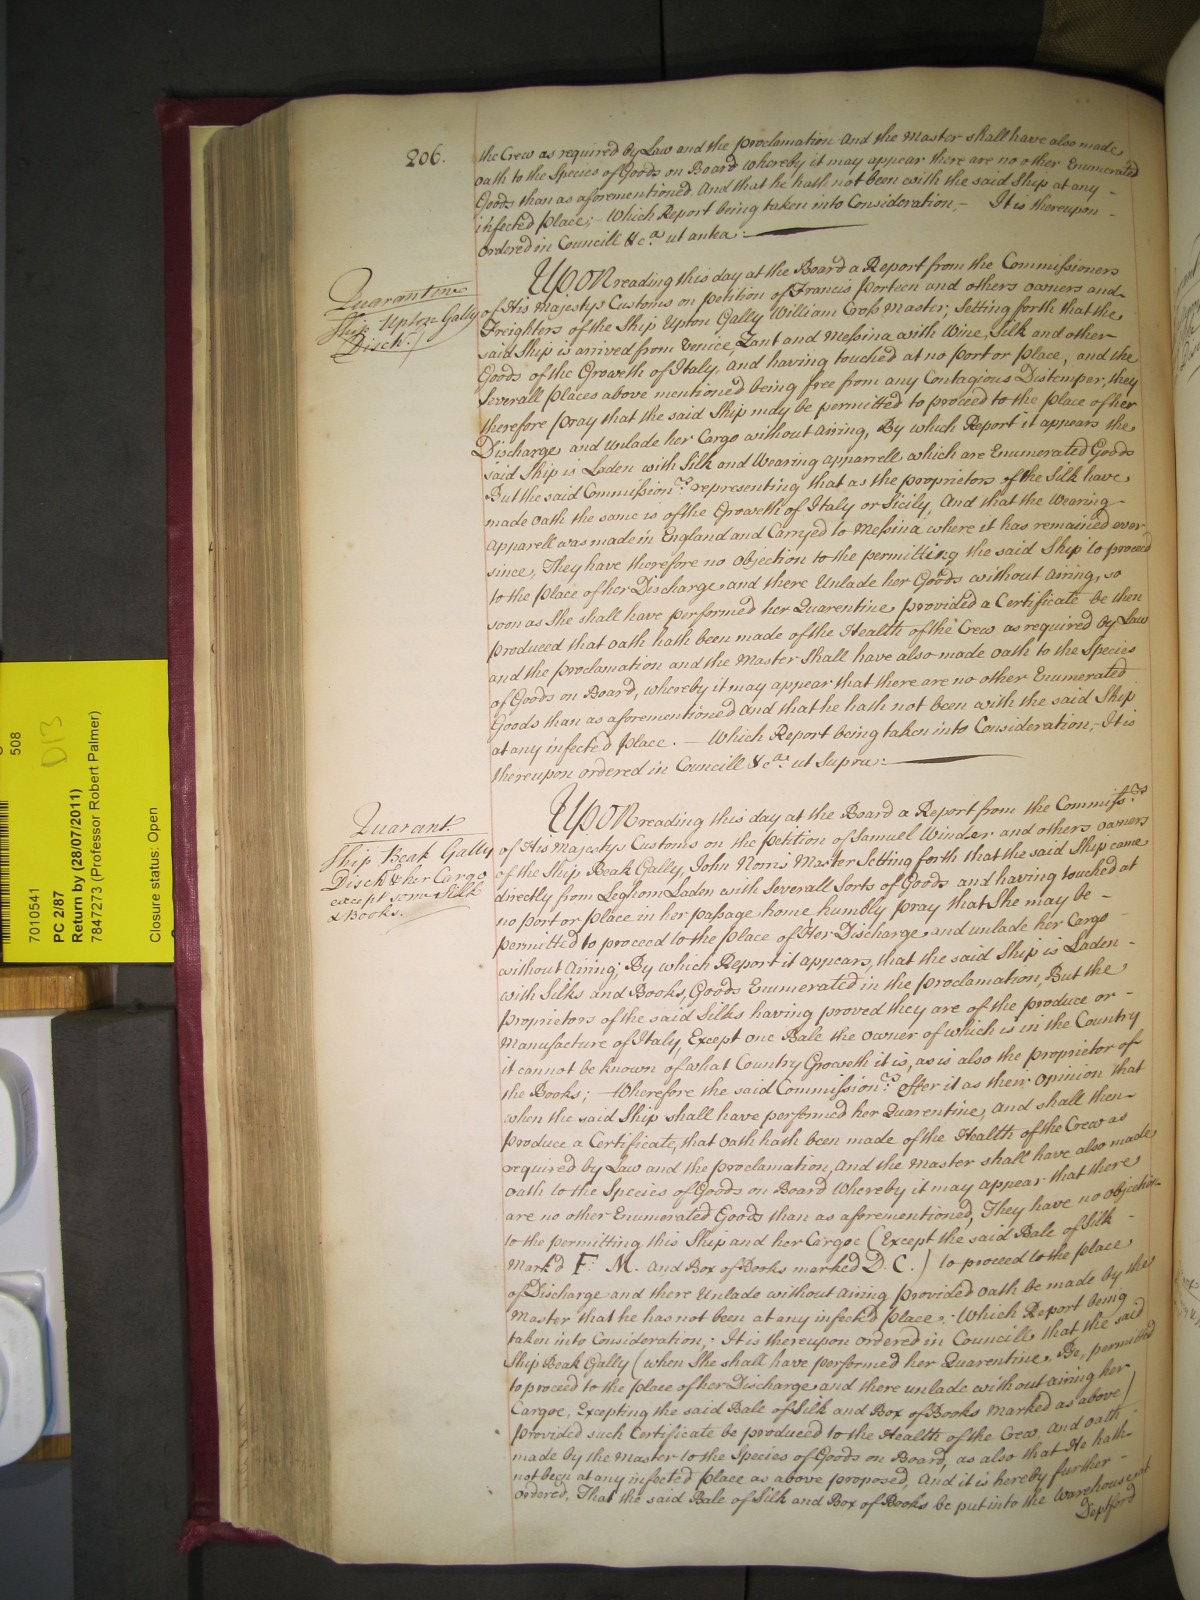 206.
the Crew as required by Law and the Proclamation And the Master shall have also made
Oath to the Species of Goods on Board whereby it may appear there are no other Enumerated
Goods than as aforementioned And that he hath not been with the said Ship at any -
infected Place; - Which Report being taken into Consideration, - It is thereupon -
Ordered in Councill &c.a ut antea:
Quarantine
Ship Upton Gally
Disch.
UPON reading this day at the Board a Report from the Commissioners
of His Majestys Customs on petition of Francis Porteen and others owners and
Freighters of the Ship Upton Gally William Cross Master; Setting forth that the
said Ship is arrived from Venice, Zant and Messina with Wine, Silk and other
Goods of the Growth of Italy, And having touched at no Port or Place, and the
Severall Places above mentioned being free from any Contagious Distemper, they
therefore pray that the said Ship may be permitted to proceed to the Place of her
Discharge and Unlade her Cargo without Airing, By which Report it appears the
said Ship is Laden with Silk and Wearing Apparrell which are Enumerated Goods
But the said Commission.rs representing that as the proprietors of the Silk have
made Oath the same is of the Groweth of Italy or Sicily, And that the Wearing
Apparell was made in England and Carryed to Messina where it has remained ever
since, They have therefore no Objection to the permitting the said Ship to proceed
to the Place of her Discharge and there Unlade her Goods without Airing, so
soon as She shall have performed her Quarentine provided a Certificate be then
produced that Oath hath been made of the Health of the Crew as required by Law
and the Proclamation and the Master Shall have also made Oath to the Species
of Goods on Board, whereby it may appear that there are no other Enumerated
Goods than as aforementioned And that he hath not been with the said Ship
at any infected Place. - Which Report being taken into Consideration, - It is
thereupon ordered in Councill &c.a ut Supra:
Quarant.
Ship Beak Gally
Disch. & her Cargo
except some Silk
& Books.
UPON reading this day at the Board a Report from the Commiss.rs
of His Majestys Customs on the Petition of Samuel Winder and others owners
of the Ship Beak Gally, John Norris Master Setting forth that the said Ship came
directly from Leghorn Laden with Severall Sorts of Goods and having touched at
no Port or Place in her passage home, humbly pray that She may be -
permitted to proceed to the Place of Her Discharge and unlade her Cargo
without Airing; By which Report it appears, that the said Ship is Laden -
with Silks and Books, Goods Enumerated in the Proclamation, But the
Proprietors of the said Silks having proved they are of the produce or -
Manufacture of Italy, Except one Bale the Owner of which is in the Country
it cannot be known of what Country Groweth it is, as is also the Proprietor of
the Books; - Wherefore the said Commission.rs offer it as their Opinion that
when the said Ship shall have performed her Quarentine, And shall then
produce a Certificate, that Oath hath been made of the Health of the Crew as
required by Law and the Proclamation, And the Master shall have also made
Oath to the Species of Goods on Board Whereby it may appear that there
are no other Enumerated Goods than as aforementioned, They have no objection
to the permitting this Ship and her Cargoe (Except the said Bale of Silk -
Mark'd F. M. And Box of Books marked D. C.) to proceed to the Place
of Discharge and there Unlade without Airing Provided Oath be made by the
Master that he has not been at any infected Place: Which Report being
taken into Consideration; It is thereupon ordered in Councill, that the said
Ship Beak Gally (when She shall have performed her Quarentine, Be, permitted
to proceed to the Place of her Discharge and there unlade without Airing her
Cargoe, Excepting the said Bale of Silk and Box of Books Marked as above)
provided such Certificate be produced to the Health of the Crew, and oath
made by the Master to the Species of Goods on Board, as also that He hath
not been at any infected Place as above proposed, And it is hereby further -
ordered, That the said Bale of Silk and Box of Books be put into the Warehouse at
Deptford
508
D13
7010541
PC 2/87
Return by (28/07/2011)
7847273 (Professor Robert Palmer)
Closure status: Open